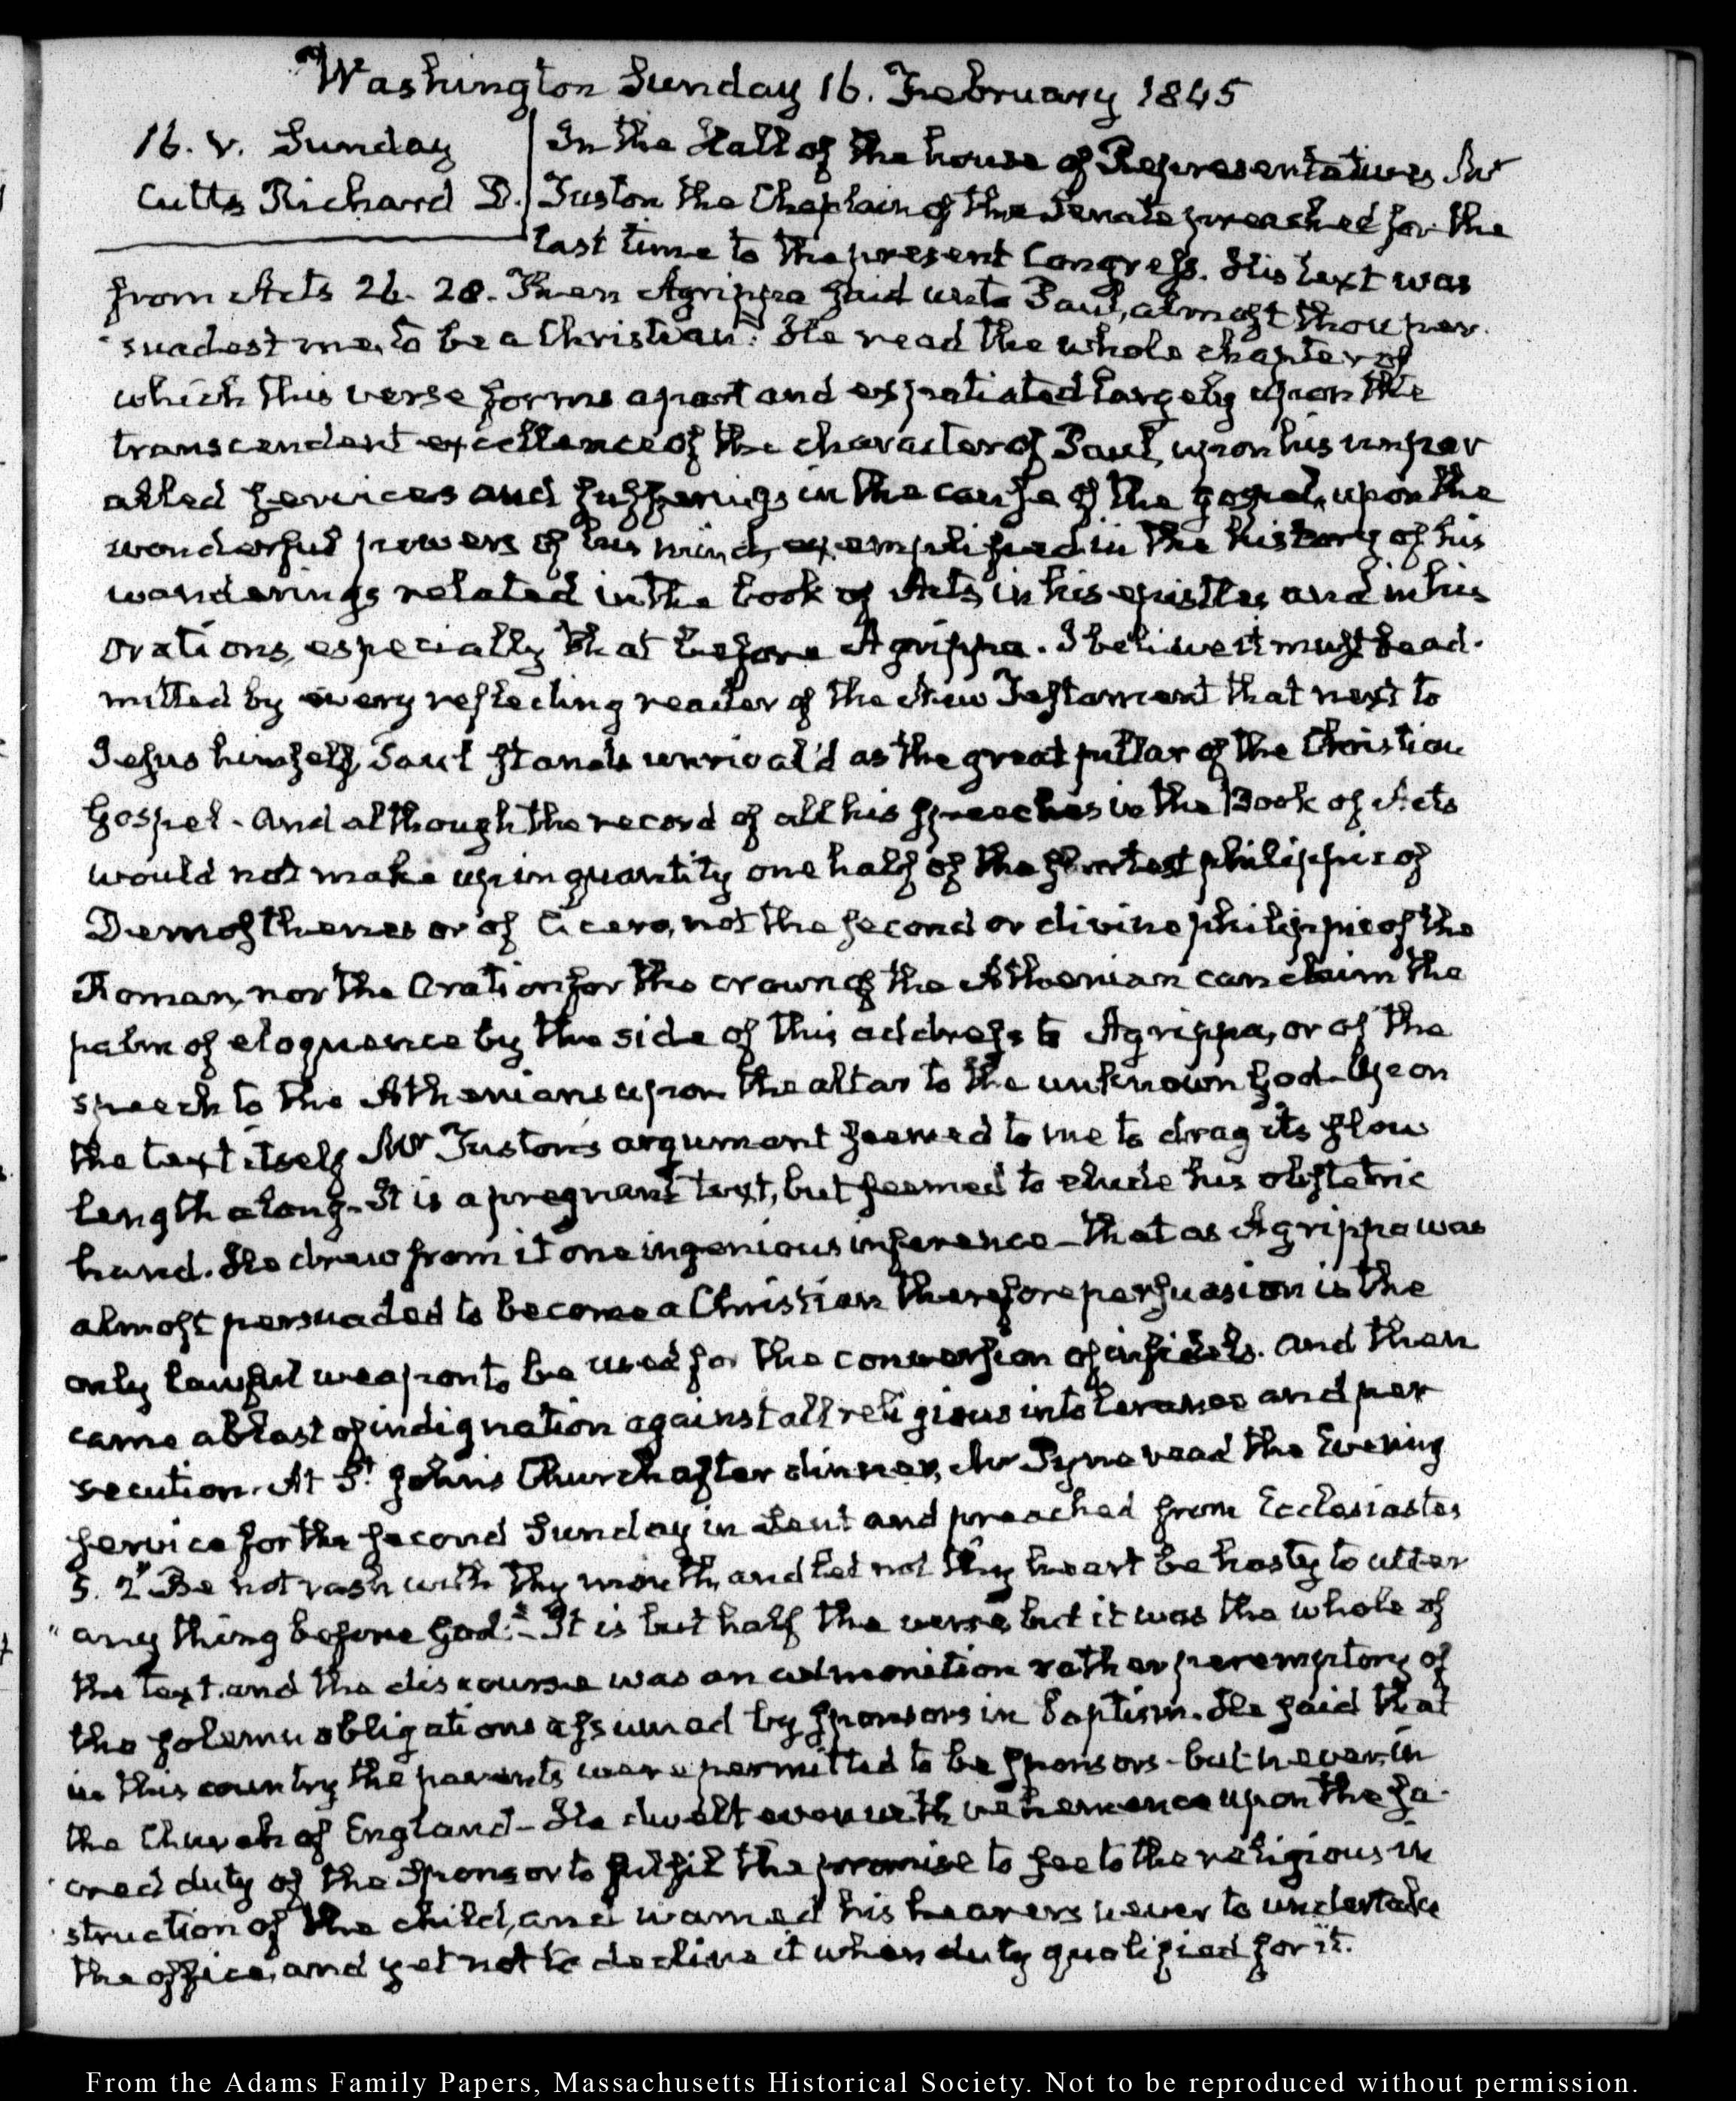 Washington Sunday 16. February 1845
16. V. Sunday
Cutts Richard D.
In the Hall of the house of Representatives Mr
Tuston the Chaplain of the Senate preached for the
last time to the present Congress. His text was
from Acts 26. 28. Then Agrippa said unto Paul, almost thou per-
suadest me, to be a Christian." He read the whole chapter of
which this verse forms a part and expatiated largely upon the
transcendent excellence of the character of Paul, upon his unpar
alled services and sufferings in the cause of the gospel, upon the
wonderful powers of his mind, exemplified in the history of his
wanderings related in the book of Acts, in his epistles and in his
orations, especially that before Agrippa. I believe it must be ad-
mitted by every reflecting reader of the New Testament that next to
Jesus himself, Paul stands unrival'd as the great pillar of the Christian
Gospel - And although the record of all his speeches in the Book of Acts
would not make up in quantity one half of the shortest philippic of
Demosthenes or of Cicero, not the second or divine philippic of the
Roman, nor the Oration for the crown of the Athenian can claim the
palm of eloquence by the side of this address to Agrippa, or of the
speech to the Athenians upon the altar to the unknown God - Upon
the text itself Mr Tuston's argument seemed to me to drag its slow
length along - It is a pregnant text, but seemed to elude his obstetric
hand. He drew from it one ingenious inference - that as Agrippa was
almost persuaded to become a Christian therefore persuasion is the
only lawful weapon to be used for the conversion of infidels. And then
came a blast of indignation against all religious intolerance and per
secution. At St. John's Church after dinner, Mr Pyne read the Evening
service for the second Sunday in Lent and preached from Ecclesiastes
5. 2 "Be not rash with thy mouth, and let not thy heart be hasty to utter
"any thing before God." - It is but half the verse, but it was the whole of
the text, and the discourse was an admonition rather peremptory of
the solemn obligations assumed by sponsors in Baptism. He said that
in this country the parents were permitted to be sponsors - but never in
the Church of England - He dwelt even with vehemence upon the sa-
cred duty of the Sponsor to fulfil the promise to see to the religious in
struction of the child, and warned his hearers never to undertake
the office, and yet not to decline it when duly qualified for it.
From the Adams Family Papers, Massachusetts Historical Society. Not to be reproduced without permission.